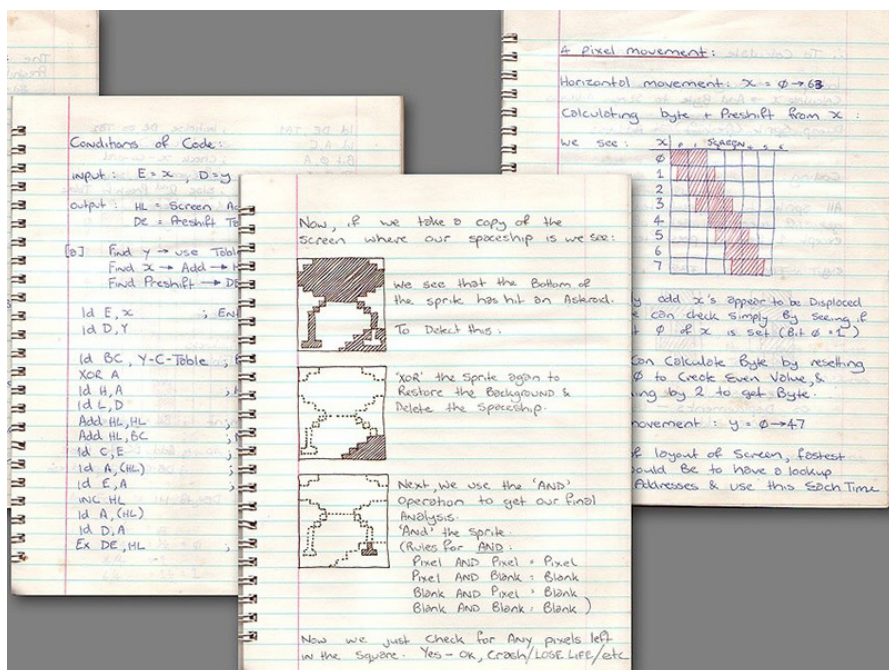 Conditions of Code:
input: E = x, D = y
output: HL = Screen
DE = Preshift
[a] Find y → use Table
Find x → Add →
Find Preshift → DE
ld E,x ;
ld D,Y
ld BC, Y-C-Table ;
XOR A
ld H,A ;
ld L,D
Add HL,HL
Add HL,BC ;
ld C,E ;
ld A,(HL) ;
ld E,A ;
INC HL
ld A,(HL)
ld D,A
Ex DE,HL ;
Now, if we take a copy of the
Screen where our spaceship is we see:
We see that the Bottom of
the sprite has hit an Asteroid.
To Detect this:
'XOR' the Sprite again to
Restore the Background &
Delete the Spaceship.
Next, we use the 'AND'
Operation to get our final
Analysis.
'And' the Sprite.
(Rules for AND:
Pixel AND Pixel = Pixel
Pixel AND Blank = Blank
Blank AND Pixel = Blank
Blank AND Blank = Blank )
Now we just Check for Any pixels left
in the Square. Yes - OK, Crash/LOSE LIFE/etc
4 pixel movement:
Horizontal movement: x = 0→63
Calculating byte + Preshift from x:
we see:
x SCREEN
0
1
2
3
4
5
6
7
add x's appear to be Displaced
can check simply By seeing if
0 of x is set (Bit 0 = 1)
Can Calculate Byte by resetting
0 to Creat Even Value, &
by 2 to get Byte.
movement: y = 0→47
layout of Screen, fastest
would Be to have a lookup
Addresses & use this Each Time